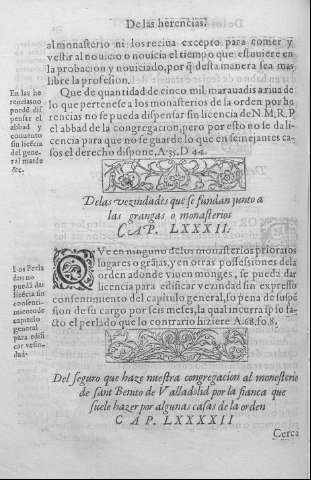 De las herencias.
al monasterio ni los reciua excepto para comer y
vestir al nouicio o nouicia el tiempo que estuuiere en
la probacion y nouiciado, por q̃ desta manera sea mas
libre la profesion.
En las he
rencias no
puedē dis
pensar el
abbad y
conuento
sin licēcia
del gene-
ral mande
&c.
Que de quantidad de cinco mil marauadis arriua de
lo que pertenese a los monasterios de la orden por ho
rencias no se pueda dispensar sin licencia de N. M. R. P.
el abbad de la congregacion, pero por esto no se da li-
cencia para que no se guarde lo que en semejantes ca-
sos el derecho dispone, A. 35. D 44.
De las vezindades que se fundan junto a
las grangas o monasterios
CAP. LXXXII.
Los Perla
dos no
puedā dar
licēcia sin
consenti-
miento de
capitulo
general
para edifi
car vesin-
dad.
QVe en ninguno de los monasterios prioratos
lugares o grājas, y en otras possessiones de la
orden adonde viuen monges, se pueda dar
licencia para edificar vezindad sin expresso
consentimiento del capitulo general, so pena de suspē
sion de su cargo por seis meses, la qual incurra ipso fa-
cto el perlado que lo contrario hiziere A. 68. fo. 8.
Del seguro que haze nuestra congregacion al monesterio
de sant Benito de Valladolid por la fianca que
suele hazer por algunas casas de la orden
CAP. LXXXXII
Cerca